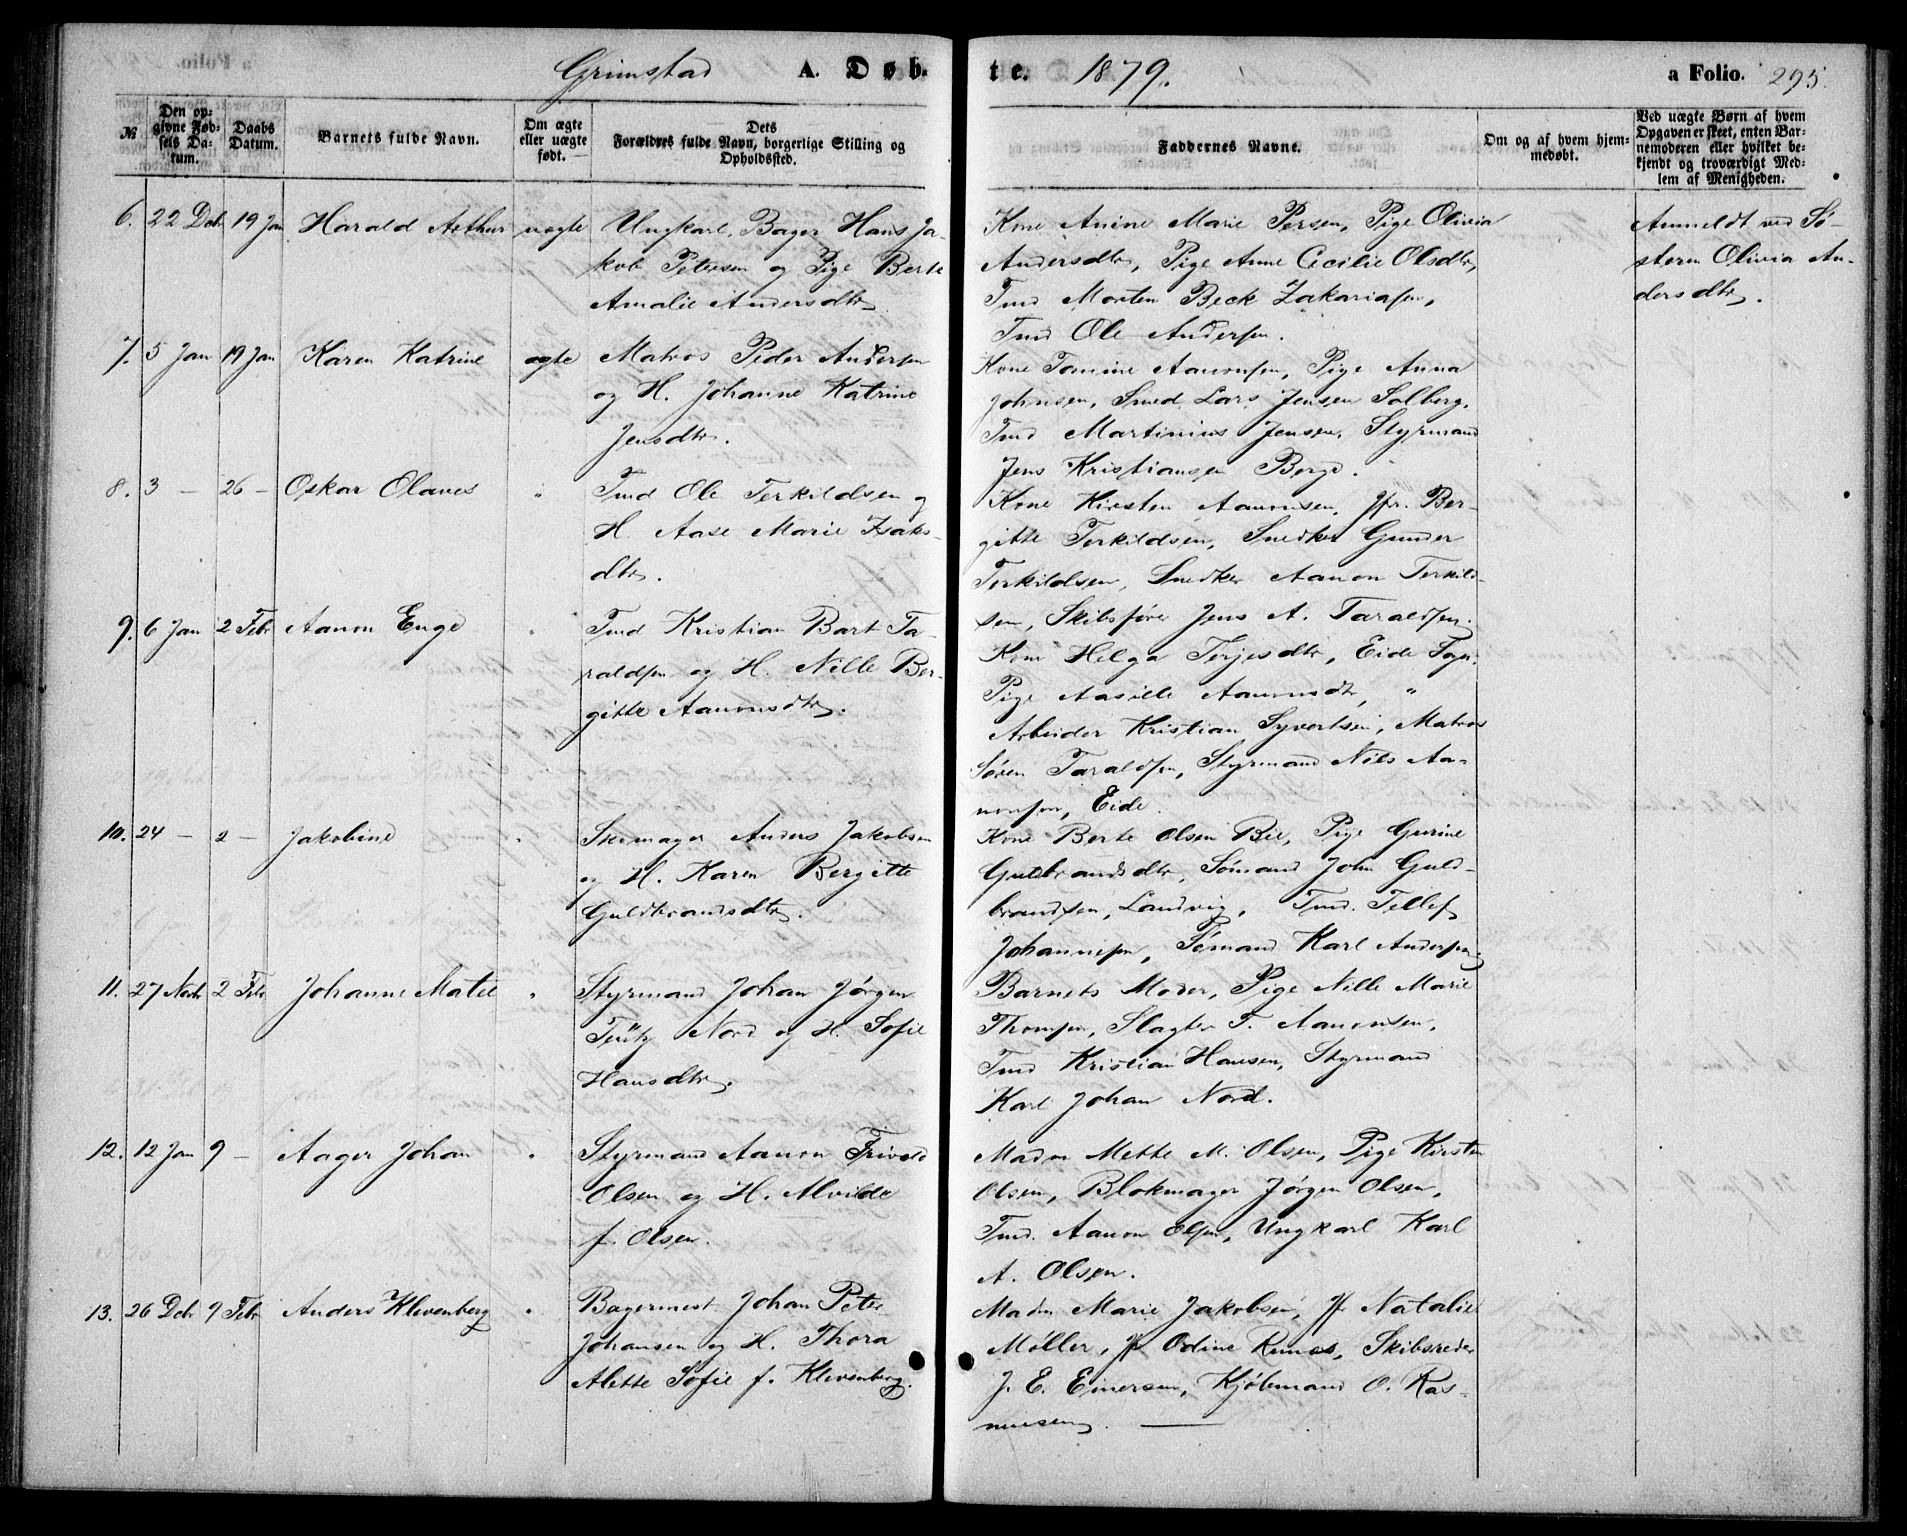 Grimstad A. Døb-
te. 1879. a Folio. 295.
№
Den op-
givne Fød-
sels Da-
tum.
Daabs
Datum.
Barnets fulde Navn.
Om ægte
eller uægte
født.
Dets
Forældres fulde Navn, borgerlige Stilling og
Opholdssted.
Faddernes Navne.
Om og af hvem hjem-
medøbt.
Ved uægte Børn af hvem
Opgaven er skeet, enten Bar-
nemoderen eller hvilket be-
kjendt og troværdigt Med-
lem af Menigheden.
6. 22 Dcbr 19 Jan Harald Arthur uægte
Ungkarl, Bager Hans Ja-
kob Petersen og Pige Berte
Amalie Andersdtr
Kone Anine Marie Persen, Pige Olivia
Andersdtr, Pige Anne Cecilie Olsdtr,
Tmd Morten Beck Zakariasen,
Tmd Ole Andersen.
Anmeldt ved Sø-
steren Olivia An-
dersdtr.
7. 5 Jan 19 Jan Karen Katrine ægte
Matros Peder Andersen
og H. Johanne Katrine
Jensdtr.
Kone Tomine Aanonsen, Pige Anna
Johnsen, Smed Lars Jensen Solberg,
Tmd Martinius Jensen, Styrmand
Jens Kristiansen Berge.
8. 3 — 26 — Oskar Olaves "
Tmd Ole Terkildsen og
H. Aase Marie Isaks-
dtr.
Kone Kirsten Aanonsen, Jfr. Ber-
gitte Terkildsen, Snedker Gunder
Terkildsen, Snedker Aanon Terkild-
sen, Skibsfører Jens A. Taraldsen.
9. 6 Jan 2 Febr Aanon Enge "
Tmd Kristian Bart Ta-
raldsen og H. Nille Ber-
gitte Aanonsdtr.
Kone Helga Terjesdtr, Eide Sogn,
Pige Aasille Aanonsdtr, "
Arbeider Kristian Syvertsen, Matros
Søren Taraldsen, Styrmand Nils Aa-
nonsen, Eide.
10. 24 — 2 — Jakobine "
Skomager Anders Jakobsen
og H. Karen Bergitte
Guldbrandsdtr.
Kone Berte Olsen Bie, Pige Gurine
Guldbrandsdtr, Sømand John Guld-
brandsen, Landvig, Tmd. Tellef
Johannesen, Sømand Karl Andersen
11. 27 Novbr 2 Febr Johanne Matee "
Styrmand Johan Jørgen
Nord og H. Sofie
Hansdtr.
Barnets Moder, Pige Nille Marie
Thomsen, Slagter T. Aanonsen,
Tmd Kristian Hansen, Styrmand
Karl Johan Nord.
12. 12 Jan 9 — Aager Johan "
Styrmand Aanon Trivold
Olsen og H. Alvilde
f. Olsen.
Madm Mette M. Olsen, Pige Kirsten
Olsen, Blokmager Jørgen Olsen,
Tmd. Aanon Olsen, Ungkarl Karl
A. Olsen.
13. 26 Dcbr 9 Febr Anders Klevenberg "
Bagermest. Johan Peter
Johansen og H. Thora
Alette Sofie f. Klevenberg.
Madm Marie Jakobsen, Jfr Natalie
Møller, Jfr Odine Runos, Skibsreder
J. E. Emersen, Kjøbmand O. Ras-
mussen.